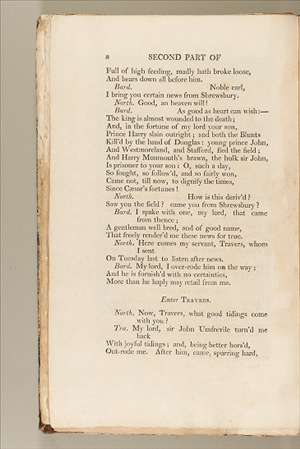 8 SECOND PART OF
Full of high feeding, madly hath broke loose,
And bears down all before him.
Bard. Noble earl,
I bring you certain news from Shrewsbury.
North. Good, an heaven will!
Bard. As good as heart can wish:—
The king is almost wounded to the death;
And, in the fortune of my lord your son,
Prince Harry slain outright; and both the Blunts
Kill'd by the hand of Douglas: young prince John,
And Westmoreland, and Stafford, fled the field;
And Harry Monmouth's brawn, the hulk sir John,
Is prisoner to your son: O, such a day,
So fought, so follow'd, and so fairly won,
Came not, till now, to dignify the times,
Since Cæsar's fortunes!
North. How is this deriv'd?
Saw you the field? came you from Shrewsbury?
Bard. I spake with one, my lord, that came
from thence;
A gentleman well bred, and of good name,
That freely render'd me these news for true.
North. Here comes my servant, Travers, whom
I sent
On Tuesday last to listen after news.
Bard. My lord, I over-rode him on the way;
And he is furnish'd with no certainties,
More than he haply may retail from me.
Enter TRAVERS.
North. Now, Travers, what good tidings come
with you?
Tra. My lord, sir John Umfrevile turn'd me
back
With joyful tidings; and, being better hors'd,
Out-rode me. After him, came, spurring hard,